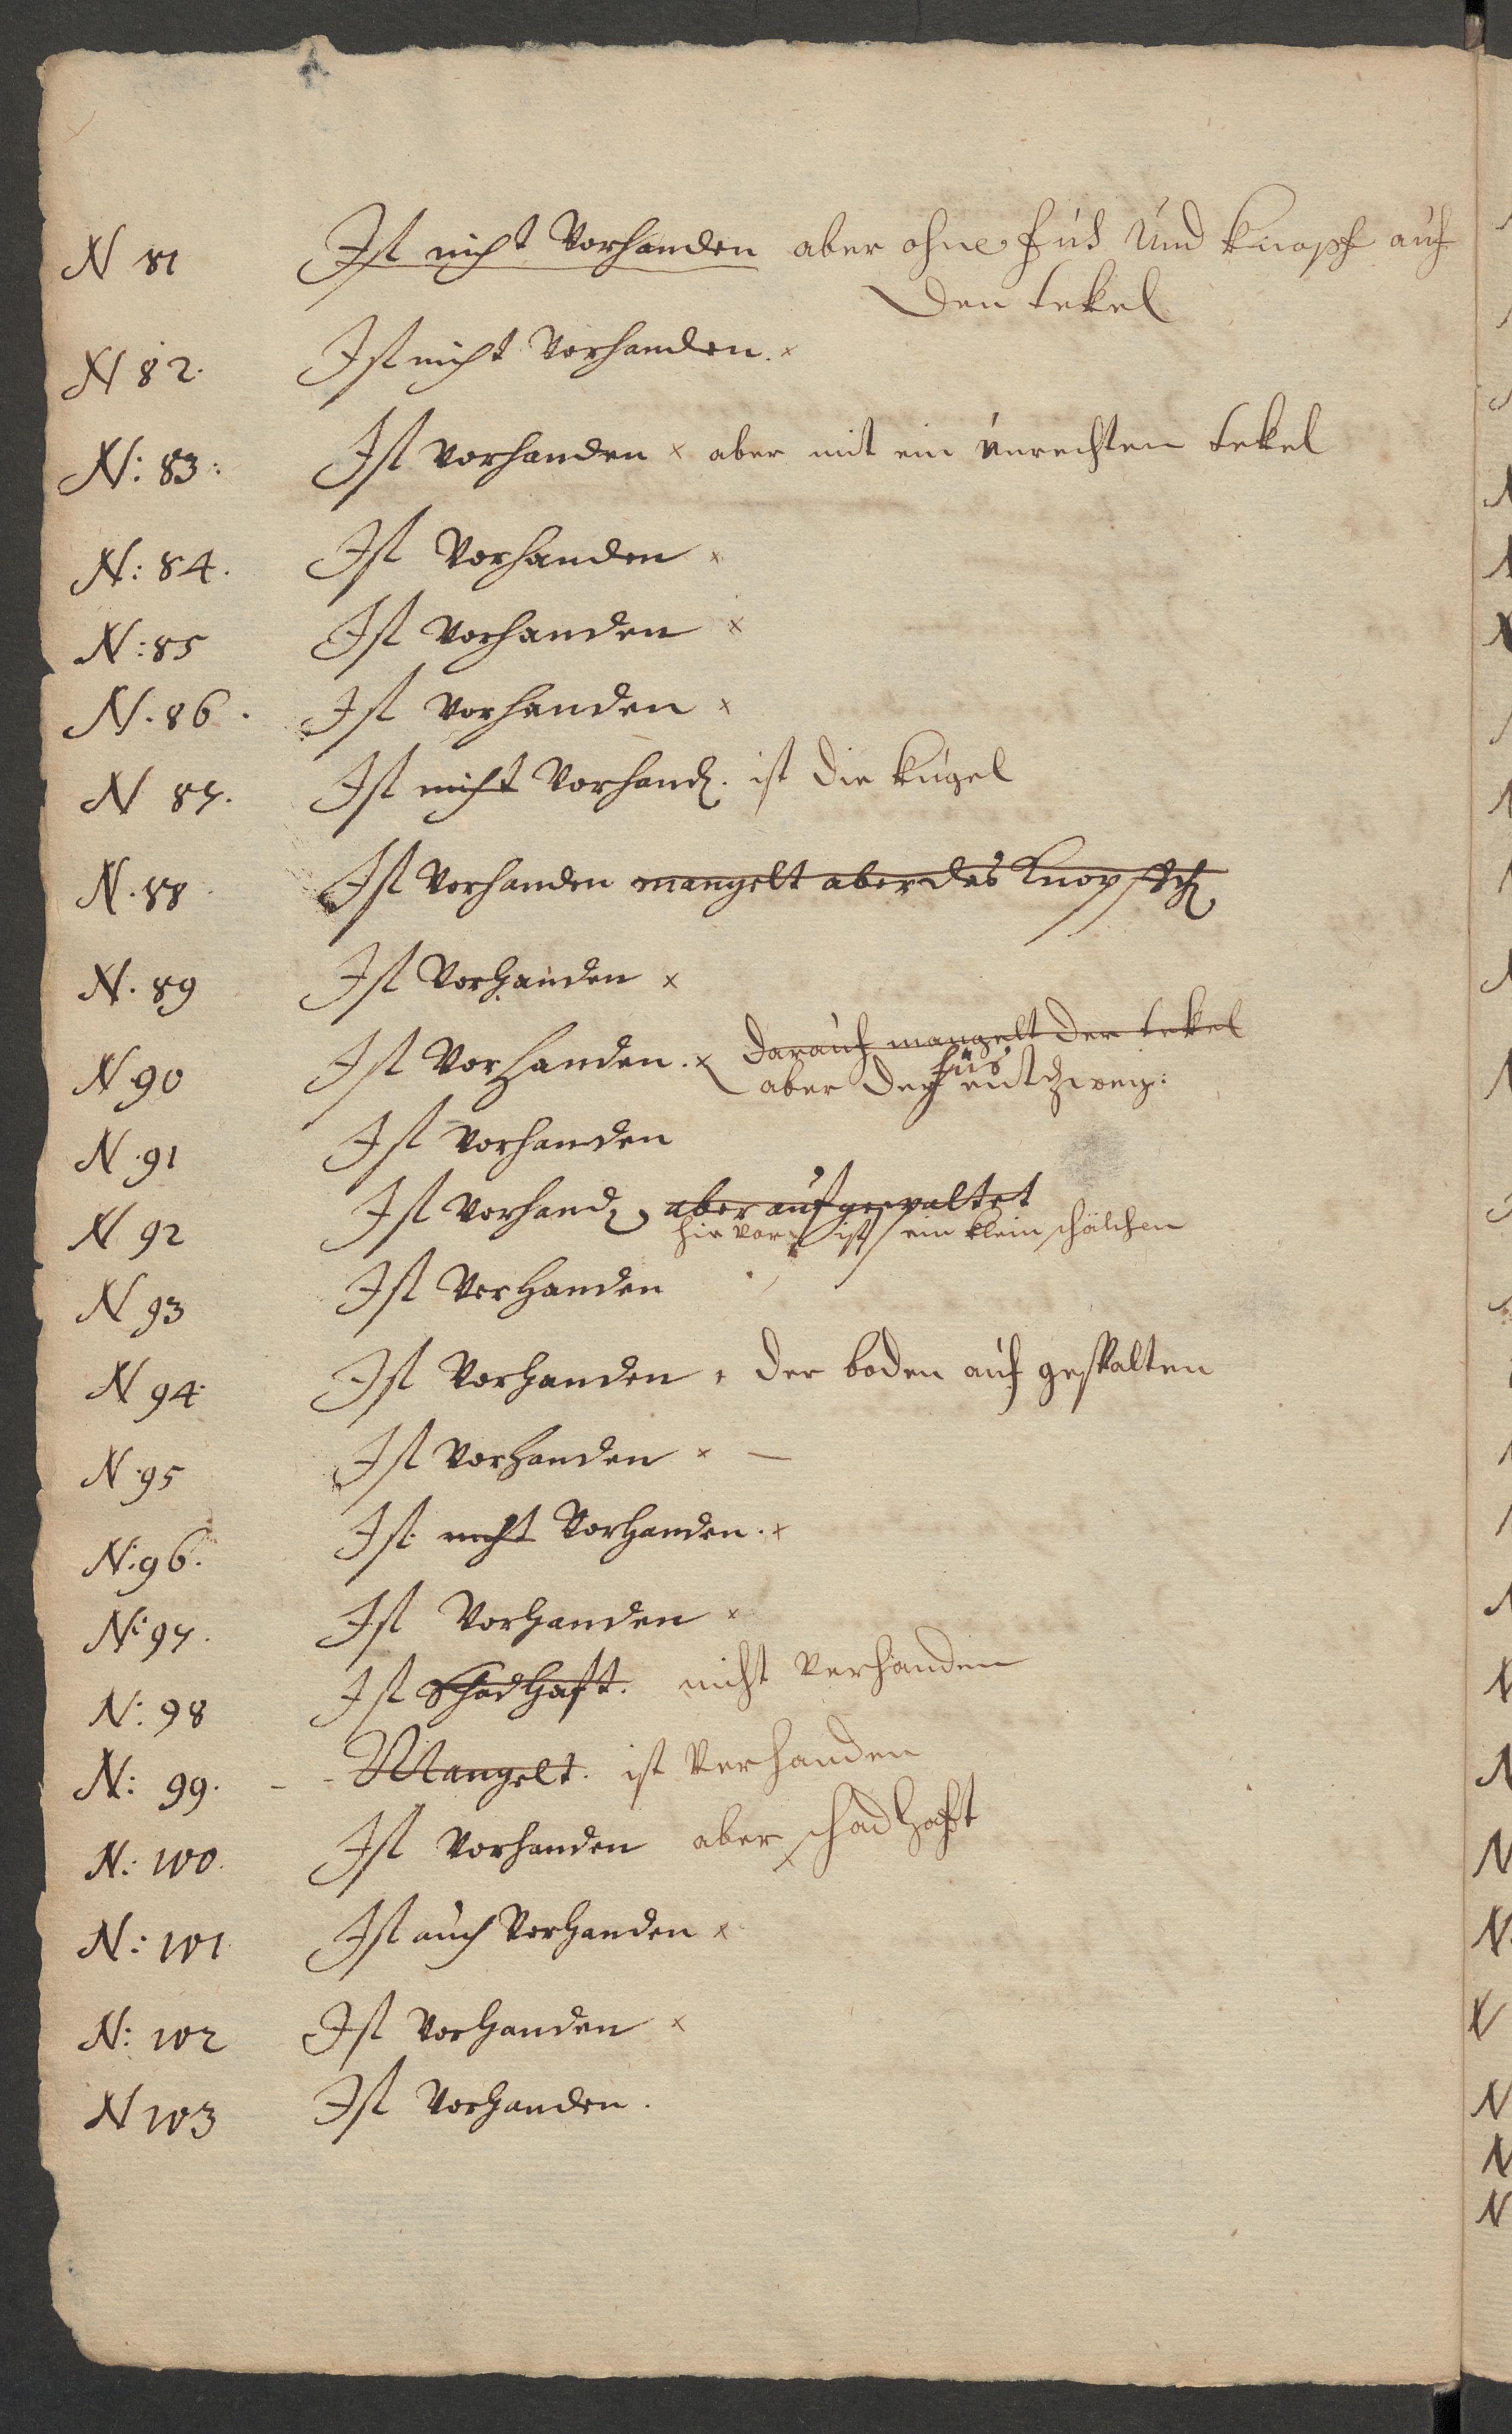 N 81 Ist nicht Vorhanden aber ohne fus Und knopf auf
den tekel
N 82. Ist nicht Vorhanden. x
N: 83: Ist vorhanden x aber mit ein unrechten tekel
N: 84. Ist Vorhanden x
N: 85 Ist Vorhanden x
N. 86. Ist vorhanden x
N 87. Ist nicht Vorhand. ist die kugel
N. 88 Ist Vorhanden mangelt aber das Knopff
N. 89 Ist Vorhanden x
N 90 Ist Vorhanden. x darauf mangelt der tekel
aber der fus entzweig:
N. 91 Ist Vorhanden
N 92 Ist Vorhand, aber aufgespaltet
hir von ist ein klein schälchen
N 93 Ist Vorhanden
N 94. Ist Vorhanden, der boden auf gespalten
N. 95 Ist Vorhanden x —
N: 96. Ist nicht Vorhanden. x
N: 97. Ist Vorhanden x
N: 98 Ist Schadhaft. nicht Verhanden
N: 99. - - Mangelt. ist Verhanden
N: 100. Ist Vorhanden aber schadhaft
N: 101 Ist auch Vorhanden x
N: 102 Ist Vorhanden x
N 103 Ist Vorhanden.